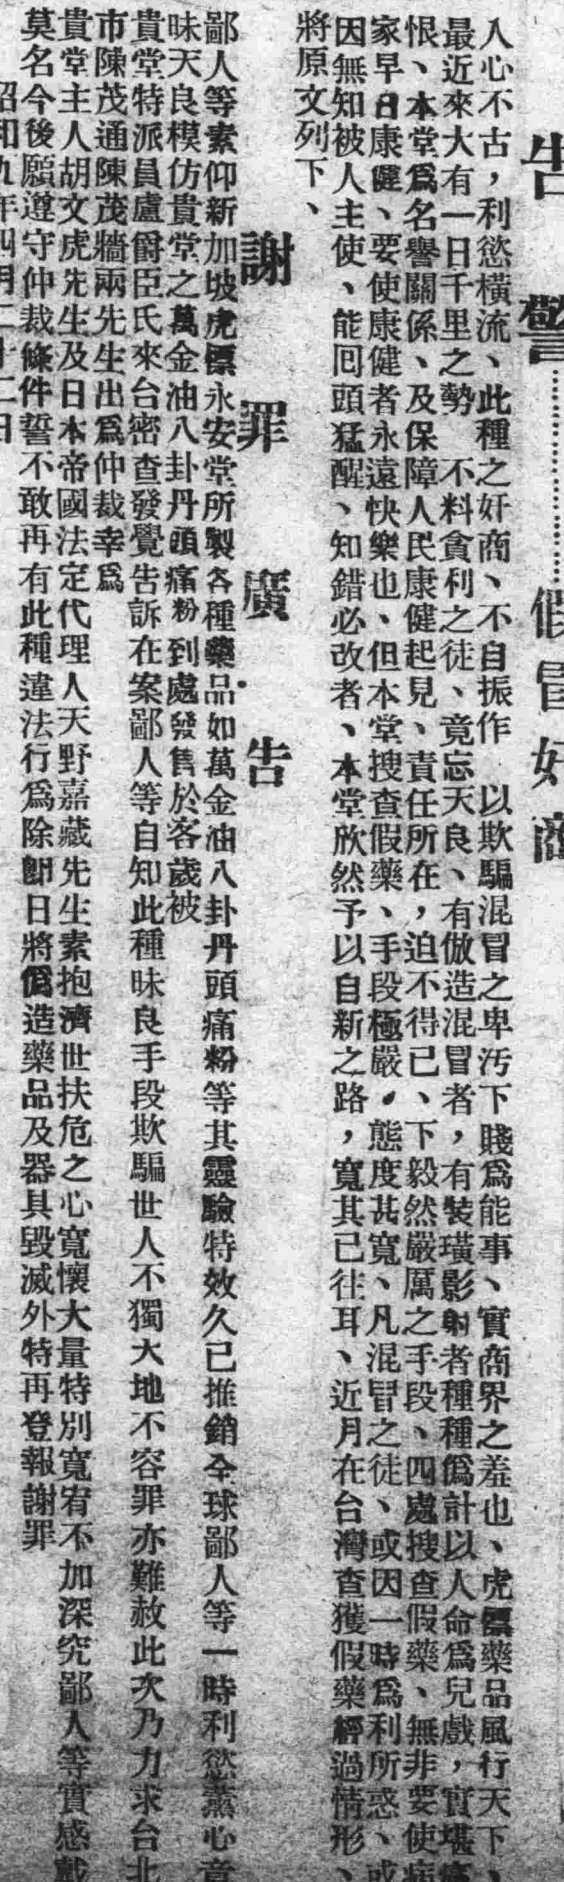 告警……假冒奸商
人心不古，利慾橫流、此種之奸商、不自振作　以欺騙混冒之卑污下賤爲能事、實商界之羞也、虎標藥品風行天下、
最近來大有一日千里之勢　不料貪利之徒、竟忘天良、有倣造混冒者，有裝璜影射者種種僞計以人命爲兒戲，實堪痛
恨、本堂爲名譽關係、及保障人民康健起見、責任所在，迫不得已、下毅然嚴厲之手段、四處搜查假藥、無非要使病
家早日康健、要使康健者永遠快樂也、但本堂搜查假藥、手段極嚴，態度甚寬、凡混冒之徒、或因一時爲利所惑、或
因無知被人主使、能囘頭猛醒、知錯必改者、本堂欣然予以自新之路，寬其已往耳、近月在台灣查獲假藥經過情形、
將原文列下、
謝罪廣告
鄙人等素仰新加坡虎標永安堂所製各種藥品如萬金油八卦丹頭痛粉等其靈驗特效久已推銷全球鄙人等一時利慾薰心竟
昧天良模仿貴堂之萬金油八卦丹頭痛粉到處發售於客歲被
貴堂特派員盧爵臣氏來台密查發覺告訴在案鄙人等自知此種昧良手段欺騙世人不獨大地不容罪亦難赦此次乃力求台北
市陳茂通陳茂牆兩先生出爲仲裁幸爲
貴堂主人胡文虎先生及日本帝國法定代理人天野嘉藏先生素抱濟世扶危之心寬懷大量特別寬宥不加深究鄙人等實感戴
莫名今後願遵守仲裁條件誓不敢再有此種違法行爲除卽日將僞造藥品及器具毀滅外特再登報謝罪
昭和九年四月二十二日